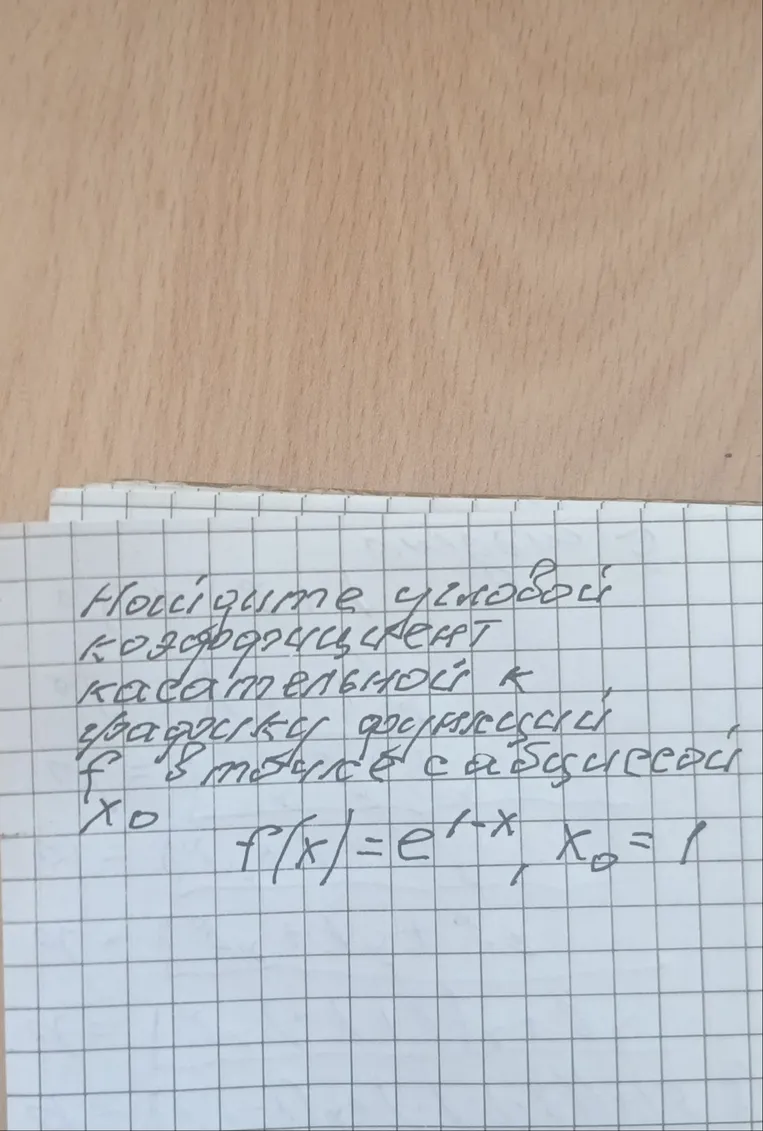 Найдите угловой
коэффициент
касательной к
графику функций
f в точке с абциссой
x₀
f(x) = e^{1-x}, x₀ = 1